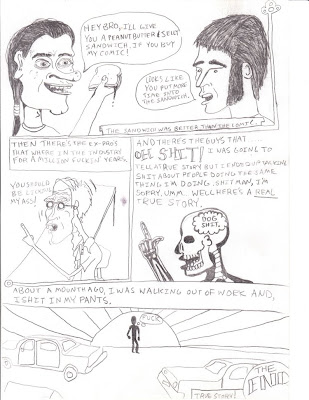 HEY BRO, I'LL GIVE
YOU A PEANUTBUTTER & JELLY
SANDWICH, IF YOU BUY
MY COMIC!
LOOKS LIKE
YOU PUT MORE
TIME INTO
THE SANDWICH.
THE SANDWICH WAS BETTER THAN THE COMIC!
THEN THERE'S THE EX-PROS
THAT WHERE IN THE INDUSTRY
FOR A MILLION FUCKIN' YEARS.
YOU SHOULD
BE
MY ASS!
AND THERES THE GUYS THAT
OH SHIT! I WAS GOING TO
TELL A TRUE STORY BUT I ENDED UP TALKING
SHIT ABOUT PEOPLE DOING THE SAME
THING I'M DOING. SHIT MAN, I'M
SORRY. UMM.. WELL HERE'S A REAL
TRUE STORY.
DOG
SHIT.
ABOUT A MOUNTH AGO, I WAS WALKING OUT OF WORK AND,
I SHIT IN MY PANTS.
FUCK
THE
END
TRUE STORY